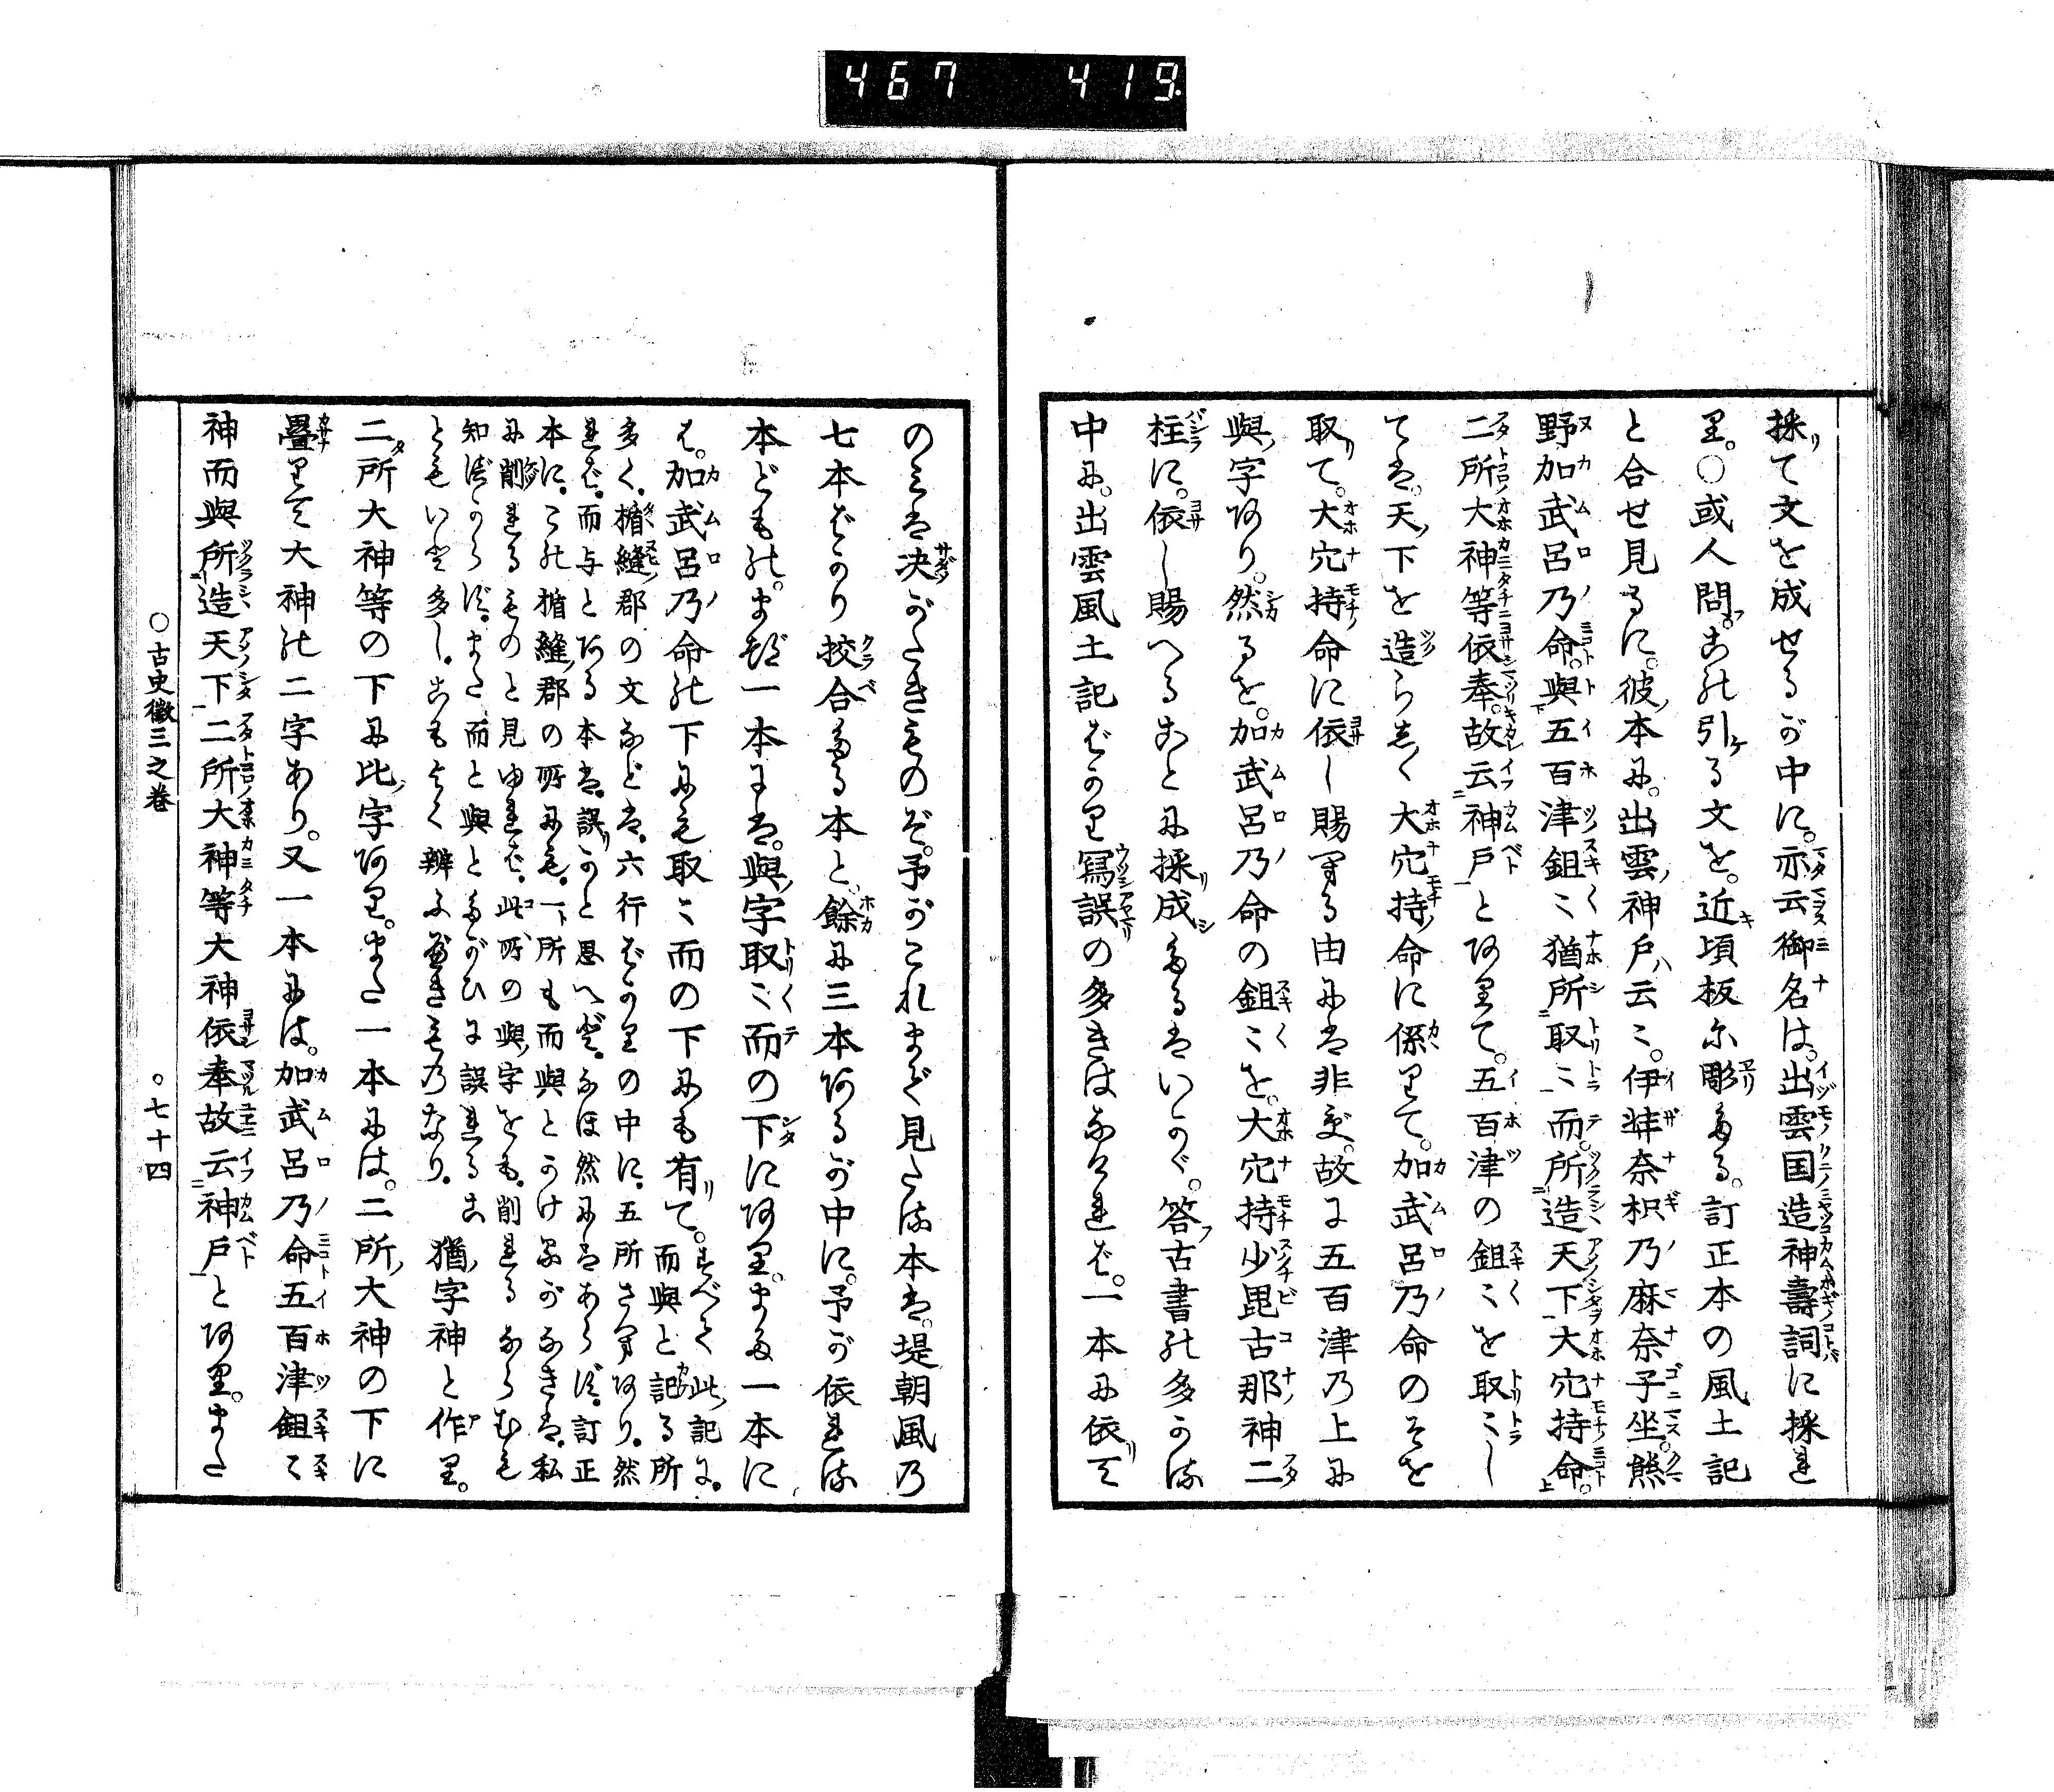 467 419.
採て文を成せるが中に。亦云御名は。出雲国造神壽詞に採れ
り。○或人問。この引る文を。近頃板に彫たる。訂正本の風土記
と合せ見るに。彼本に。出雲神戸云々。伊弉奈枳乃麻奈子坐。熊
野加武呂乃命。與五百津鉏々猶所取々而。所造天下大穴持命。
二所大神等依奉。故云神戸とありて。五百津の鉏々を取々し
ては。天下を造らしゝ大穴持命に係りて。加武呂乃命のそを
取て。大穴持命に依し賜へる由には非ず。故に五百津乃上に
與字あり。然るを。加武呂乃命の鉏々を。大穴持少毘古那神二
柱に。依し賜へることに採成たるはいかゞ。答古書の多かる
中に。出雲風土記ばかり寫誤の多きはなければ。一本に依て
のみは決がたきものぞ。予がこれまで見たる本は。堤朝風乃
七本ばかり挍合たる本と。餘に三本あるが中に。予が依れる
本どもの。まづ一本には。與字取々而の下にあり。また一本に
は。加武呂乃命の下にも取々而の下にも有て。すべて此記に。而與と記る所
多く。楯縫郡の文などは。六行ばかりの中に。五所さへあり。然
れど。而与とある本は。誤かと思へど。なほ然にはあらず。訂正
本に。この楯縫郡の所にも。一所も而與とつけるがなきは。私
に削れるものと見ゆれば。此所の與字をも。削れるならむも
知べからず。また而と與とたがひに誤れるこ
ともいと多し。こもよく辨ふべきものなり。猶字神と作り。
二所大神等の下に此字あり。また一本には。二所大神の下に
疊りて大神の二字あり。又一本には。加武呂乃命五百津鉏々
神而與所造天下二所大神等大神依奉故云神戸とあり。また
○古史徴三之巻
○七十四